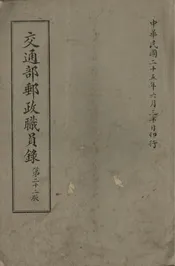 中華民國二十五年六月三十日刊行
交通部郵政職員錄
第二十二版